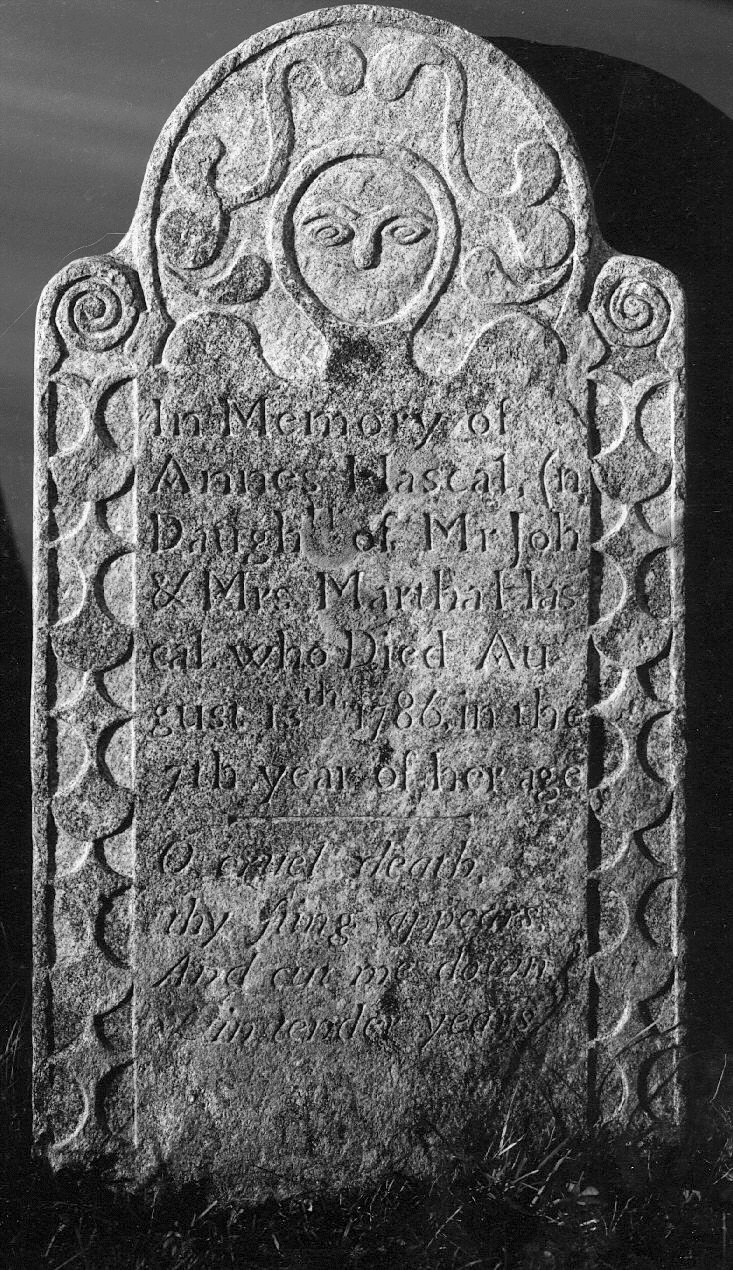 In Memory of
Annes Hascal, (n
Daughtr of Mr Joh
& Mrs. Martha Has
cal. who Died Au
gust 13th 1786. in the
7th year of her age
O cruel death,
thy sting appears.
And cut me down
in tender years.